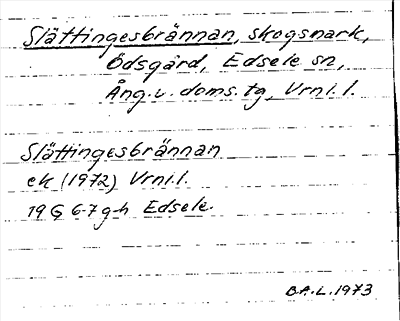 Slättingesbrännan, skogsmark,
Ödsgård, Edsele sn,
Ång. v. doms. tg, Vrnl. l.
Slättingesbrännan
ek (1972) Vrnl. l.
19 G 6-7 g-h Edsele.
B.A.L. 1973